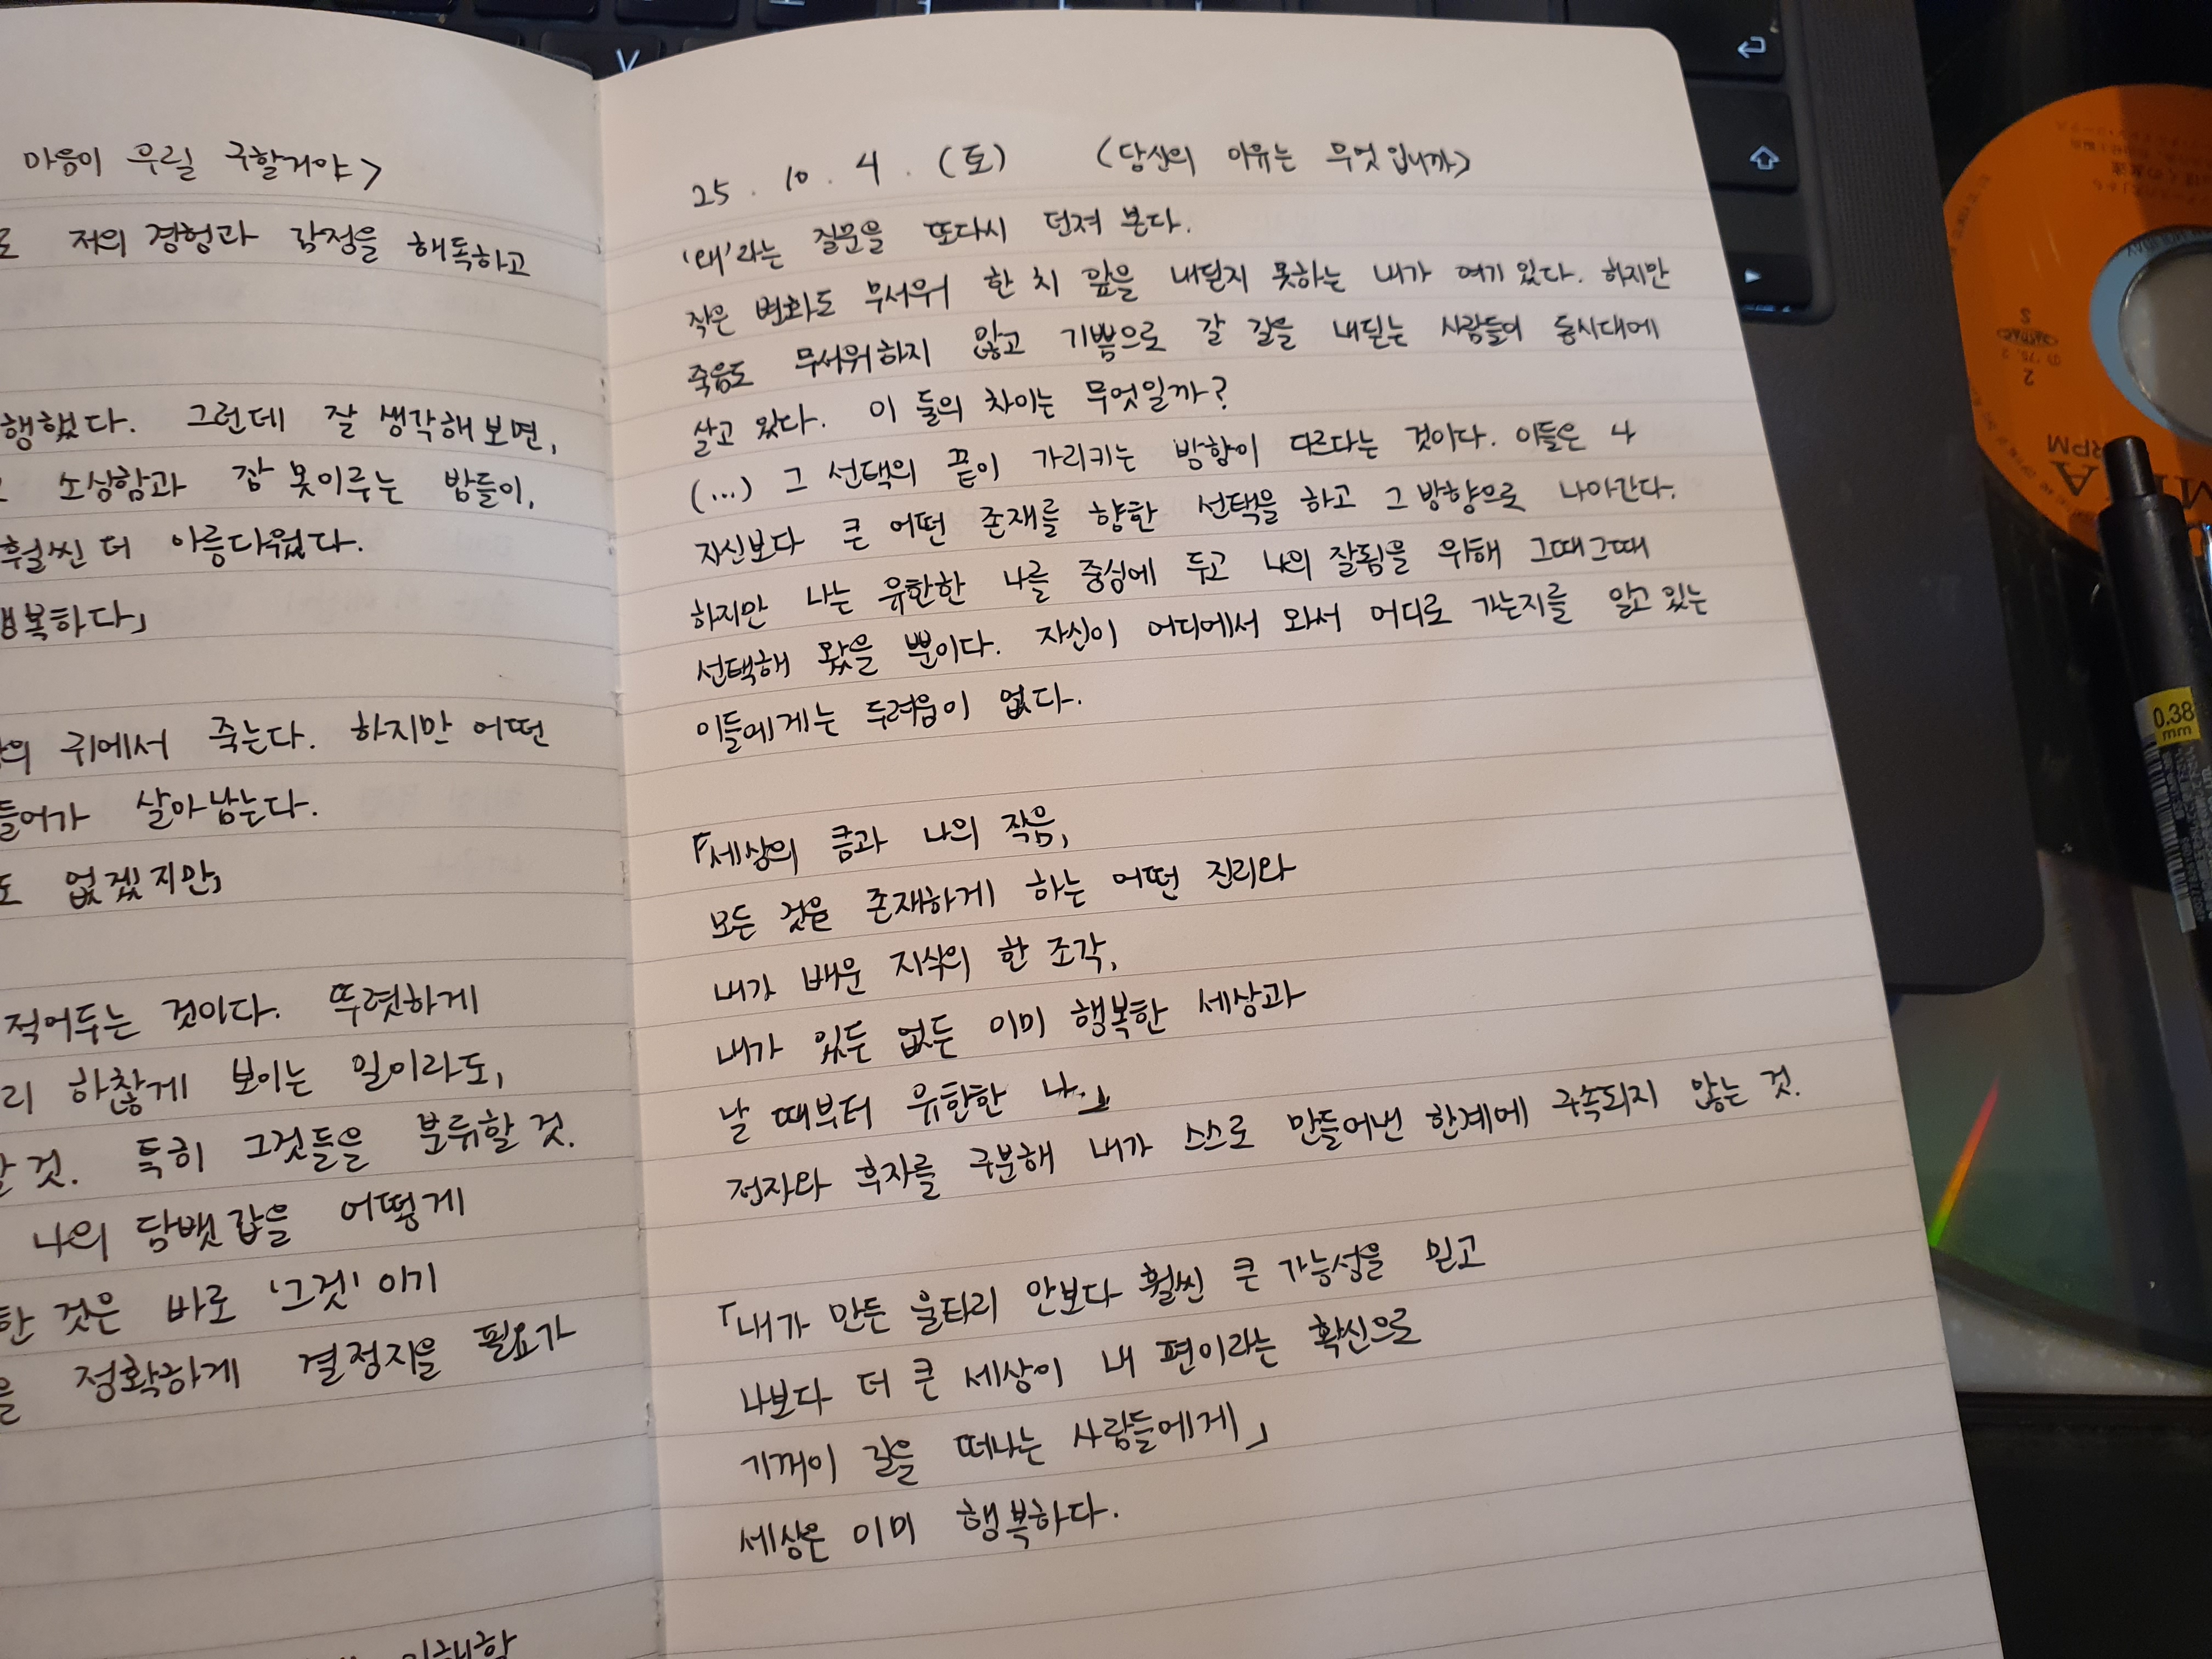 마음이 우릴 구할거야>
로 저의 경험과 감정을 해독하고
행했다. 그런데 잘 생각해 보면,
소상함과 잠 못이루는 밤들이,
훨씬 더 아름다웠다.
행복하다」
의 귀에서 죽는다. 하지만 어떤
들어가 살아남는다.
도 없겠지만」
적어두는 것이다. 뚜렷하게
리 하찮게 보이는 일이라도,
것. 특히 그것들을 분류할 것.
나의 담뱃갑을 어떻게
한 것은 바로 '그것' 이기
을 정확하게 결정지을 필요가
25. 10. 4. (토) <당신의 이유는 무엇입니까>
'왜'라는 질문을 또다시 던져 본다.
작은 변화도 무서워 한 치 앞을 내딛지 못하는 내가 여기 있다. 하지만
죽음도 무서워하지 않고 기쁨으로 갈 길을 내딛는 사람들이 동시대에
살고 있다. 이 둘의 차이는 무엇일까?
(...) 그 선택의 끝이 가리키는 방향이 다르다는 것이다. 이들은 나
자신보다 큰 어떤 존재를 향한 선택을 하고 그 방향으로 나아간다.
하지만 나는 유한한 나를 중심에 두고 나의 잘됨을 위해 그때그때
선택해 왔을 뿐이다. 자신이 어디에서 와서 어디로 가는지를 알고 있는
이들에게는 두려움이 없다.
「세상의 큼과 나의 작음,
모든 것을 존재하게 하는 어떤 진리와
내가 배운 지식의 한 조각,
내가 있든 없든 이미 행복한 세상과
날 때부터 유한한 나.」
전자와 후자를 구분해 내가 스스로 만들어낸 한계에 구속되지 않는 것.
「내가 만든 울타리 안보다 훨씬 큰 가능성을 믿고
나보다 더 큰 세상이 내 편이라는 확신으로
기꺼이 길을 떠나는 사람들에게」
세상은 이미 행복하다.
0.38
mm
RPM